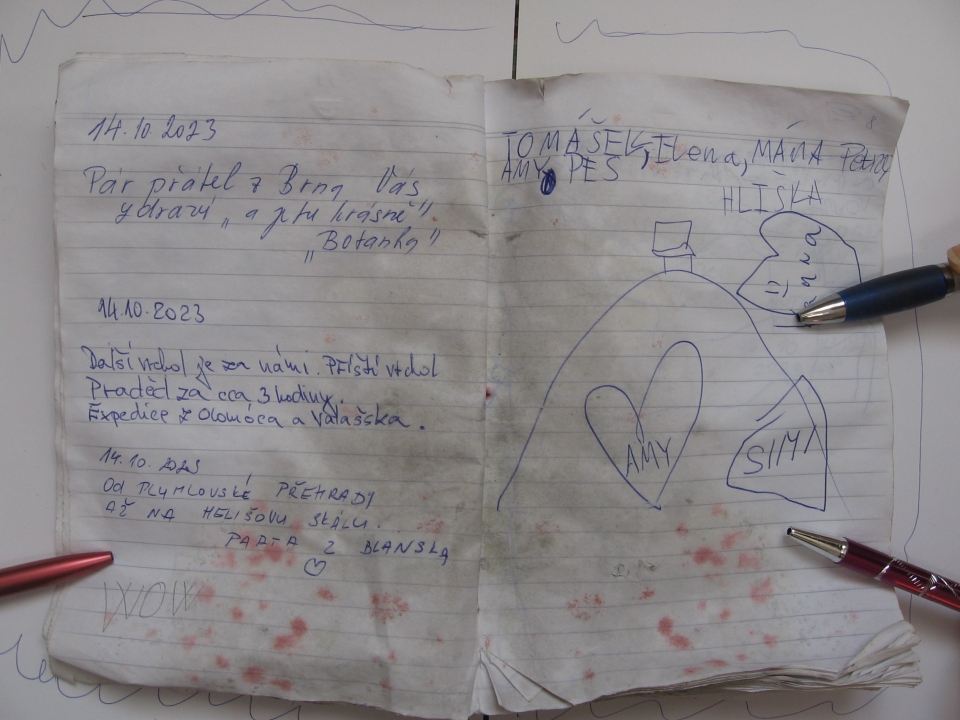 14.10 2023
Pár přátel z Brna Vás
zdraví „a je tu krásně"
„Botanka"
14.10.2023
Další vrchol je za námi. Příští vrchol
Praděd za cca 3 hodiny.
Expedice z Olomóca a Valašska.
14.10.2023
OD PLUMLOVSKÉ PŘEHRADY
AŽ NA HELIŠOVU SKÁLU.
PARTA Z BLANSKA
WOW
TOMÁŠEK, Elena, MÁŇA
AMY PES
HLIŠKA
AMY
SIMI